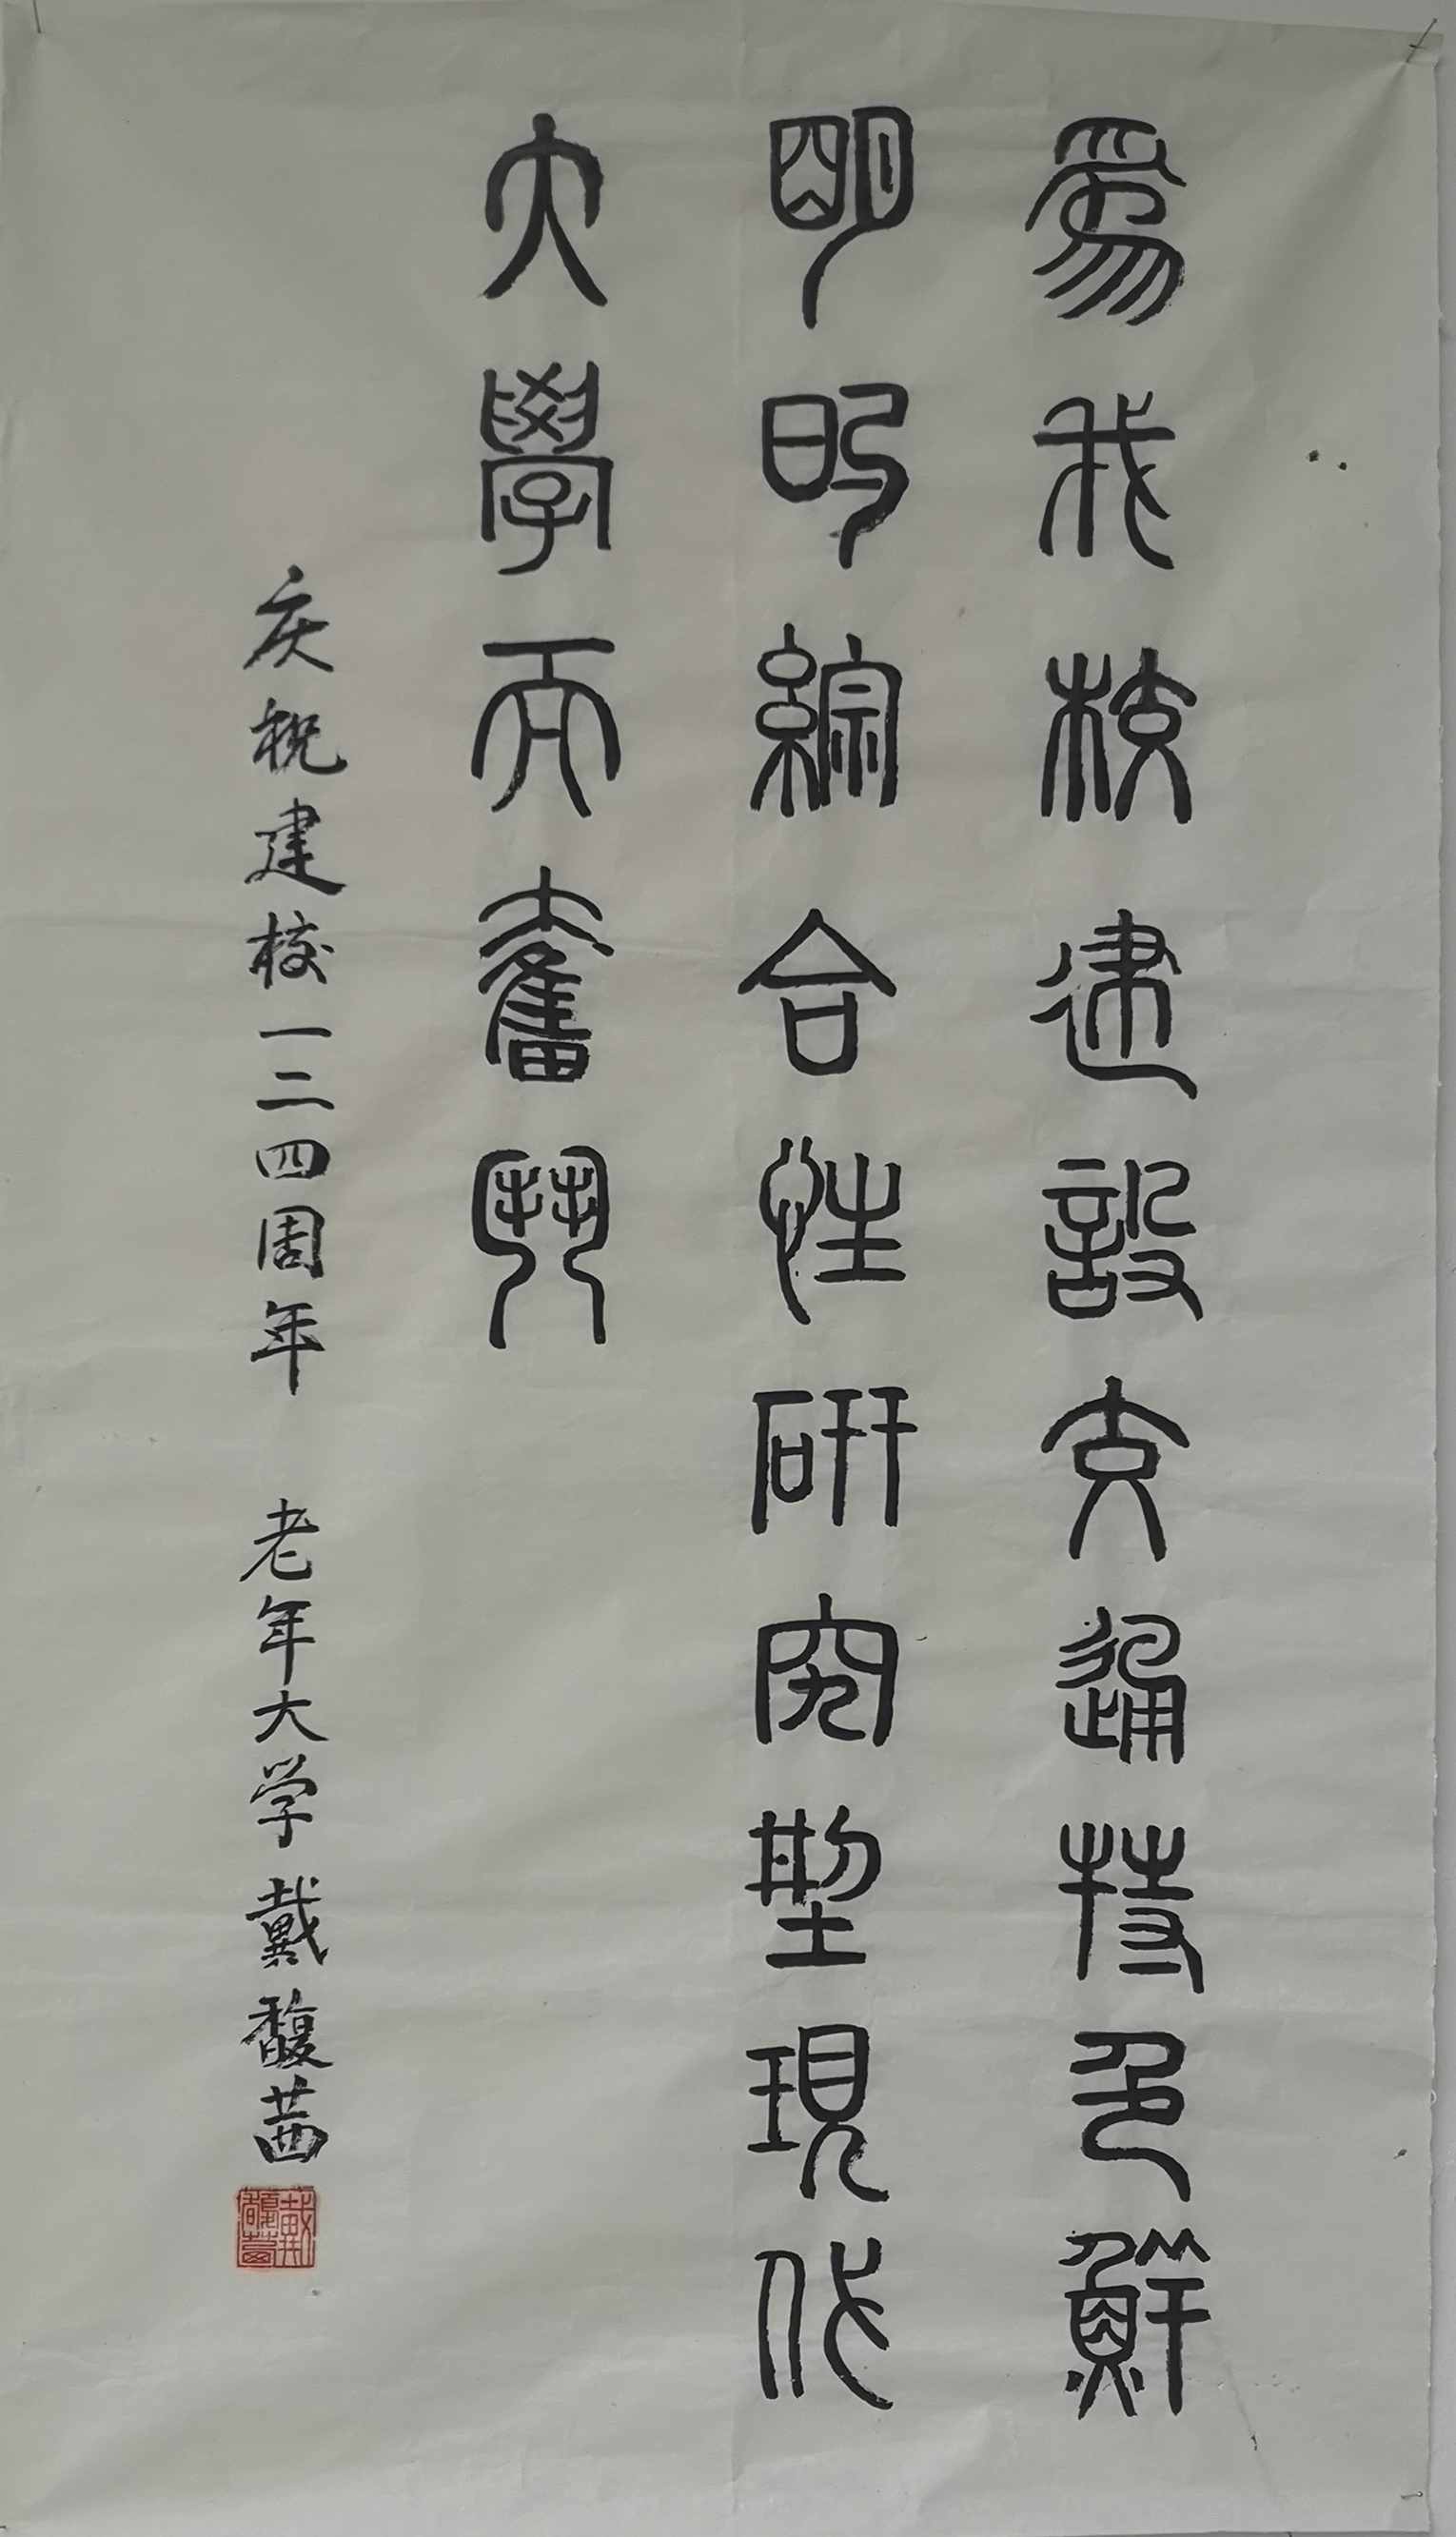 為我校建設交通特色鮮
明的綜合性研究型現代
大學而奮鬥
庆祝建校一二四周年 老年大学戴馥茜
戴馥茜